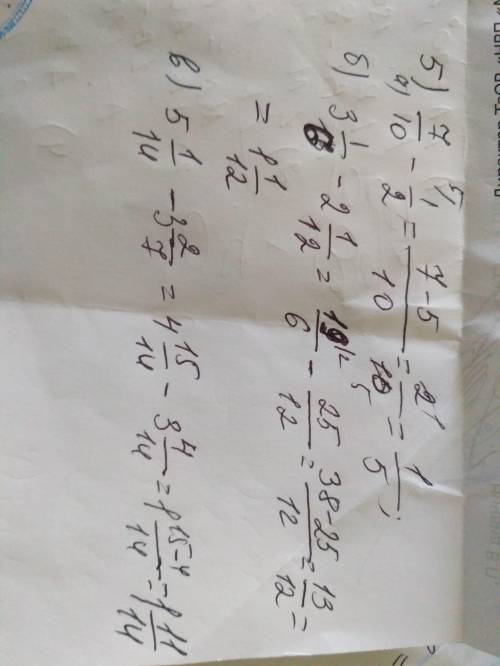 5)
а) 7/10 - 1/2 = 7-5/10 = 2/10 = 1/5;
б) 3 1/6 - 2 1/12 = 19/6 - 25/12 = 38-25/12 = 13/12 =
= 1 1/12
в) 5 1/14 - 3 2/7 = 4 15/14 - 3 4/14 = 1 15-4/14 = 1 11/14